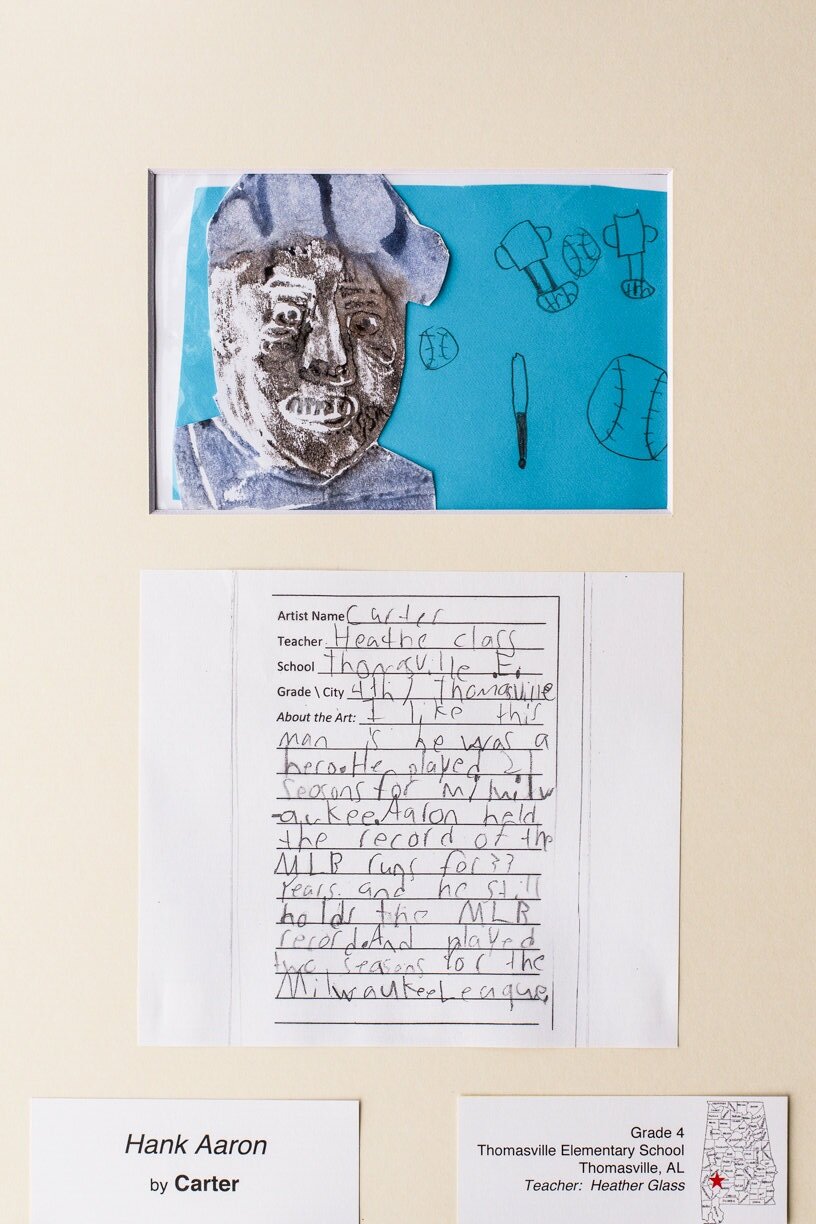 Artist Name Carter
Teacher Heathe class
School Thomasville E.
Grade \ City 4th / Thomasville
About the Art: I like this
man is he was a
hero. He played 21
seasons for Milw
-aukee. Aaron held
the record of the
MLB runs for 33
years. and he still
holds the MLB
record. And played
two seasons for the
Milwaukee League.
Hank Aaron
by Carter
Grade 4
Thomasville Elementary School
Thomasville, AL
Teacher: Heather Glass